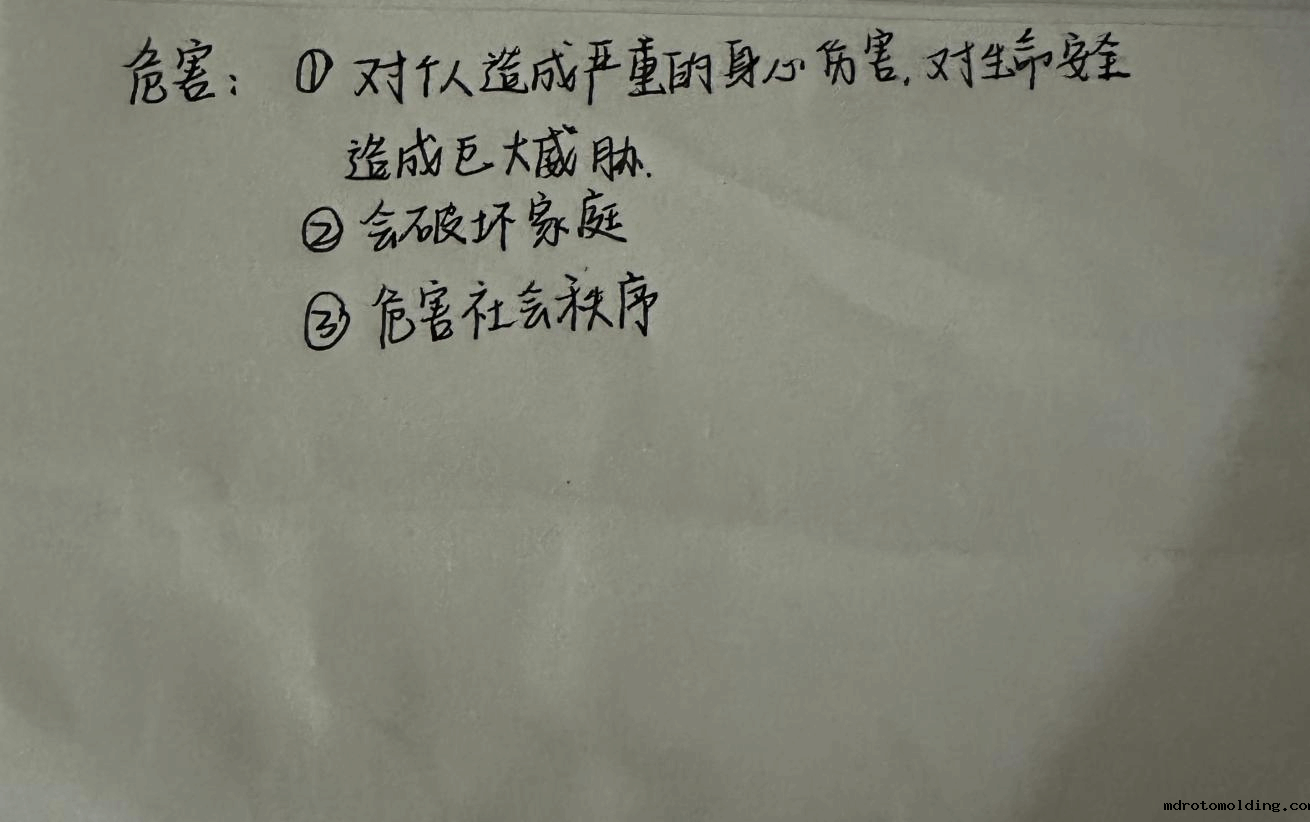 危害：① 对个人造成严重的身心伤害，对生命安全
造成巨大威胁.
② 会破坏家庭
③ 危害社会秩序
mdrotomolding.com